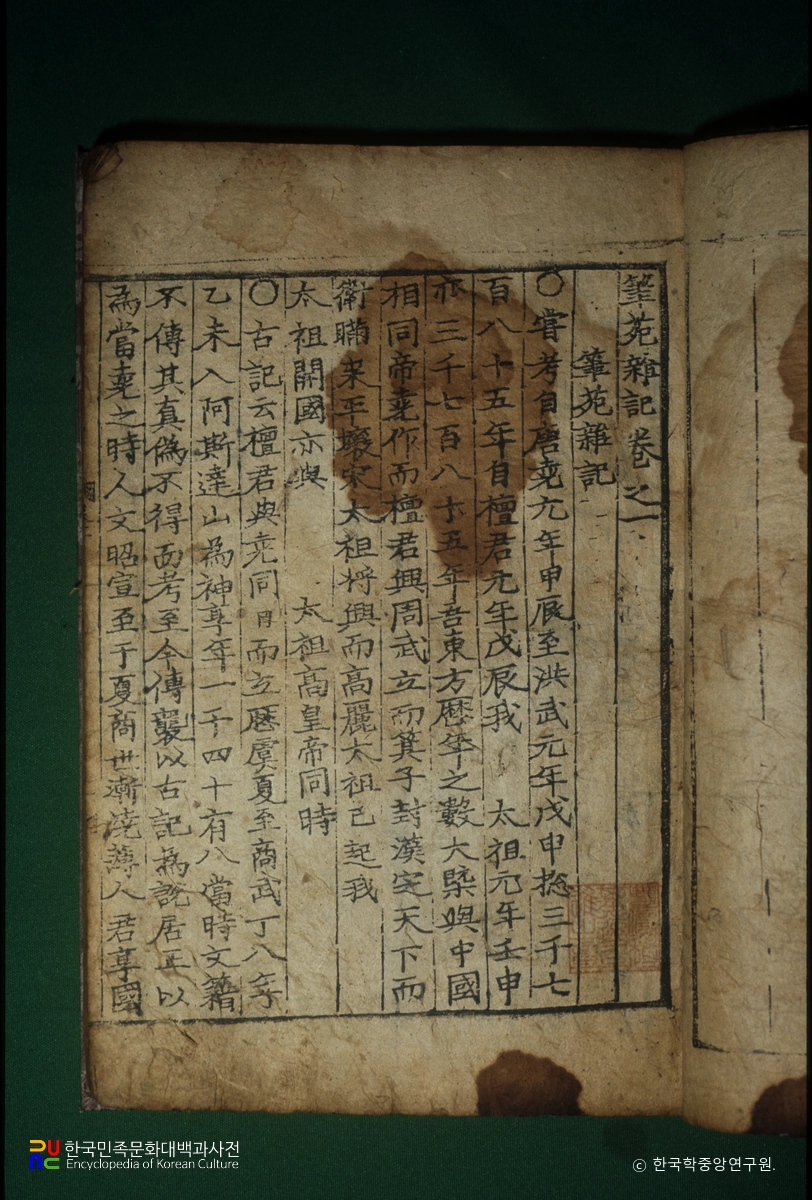 筆苑雜記卷之一
筆苑雜記
〇嘗考自唐堯元年甲辰至洪武元年戊申揔三千七
百八十五年自檀君元年戊辰我 太祖元年壬申
亦三千七百八十五年吾東方歷年之數大槩與中國
相同帝堯作而檀君興周武立而箕子封漢定天下而
衛瞞來平壤宋太祖將興而高麗太祖已起我
太祖開國亦與 太祖高皇帝同時
〇古記云檀君與堯同日而立歷虞夏至商武丁八年
乙未入阿斯達山爲神享年一千四十有八當時文籍
不傳其真僞不得而考至今傳襲以古記爲說居正以
爲當堯之時人文昭宣至于夏商世漸澆薄人君享國
한국민족문화대백과사전
Encyclopedia of Korean Culture
© 한국학중앙연구원.